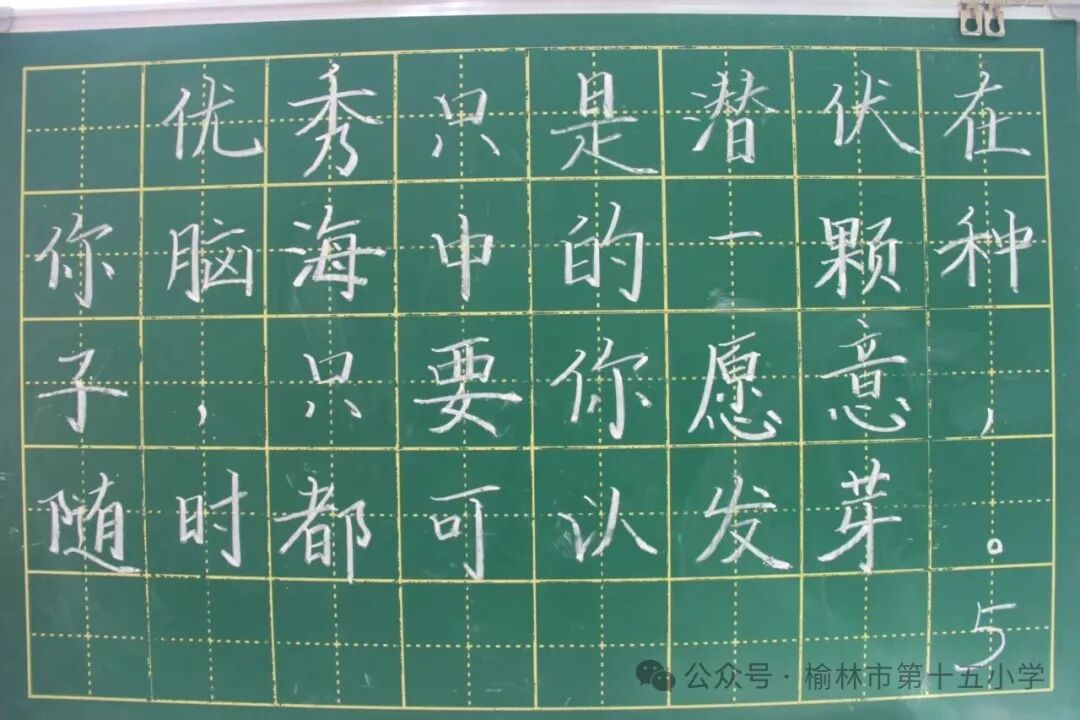 优秀只是潜伏在
你脑海中的一颗种
子，只要你愿意，
随时都可认发芽。
5
公众号·榆林市第十五小学